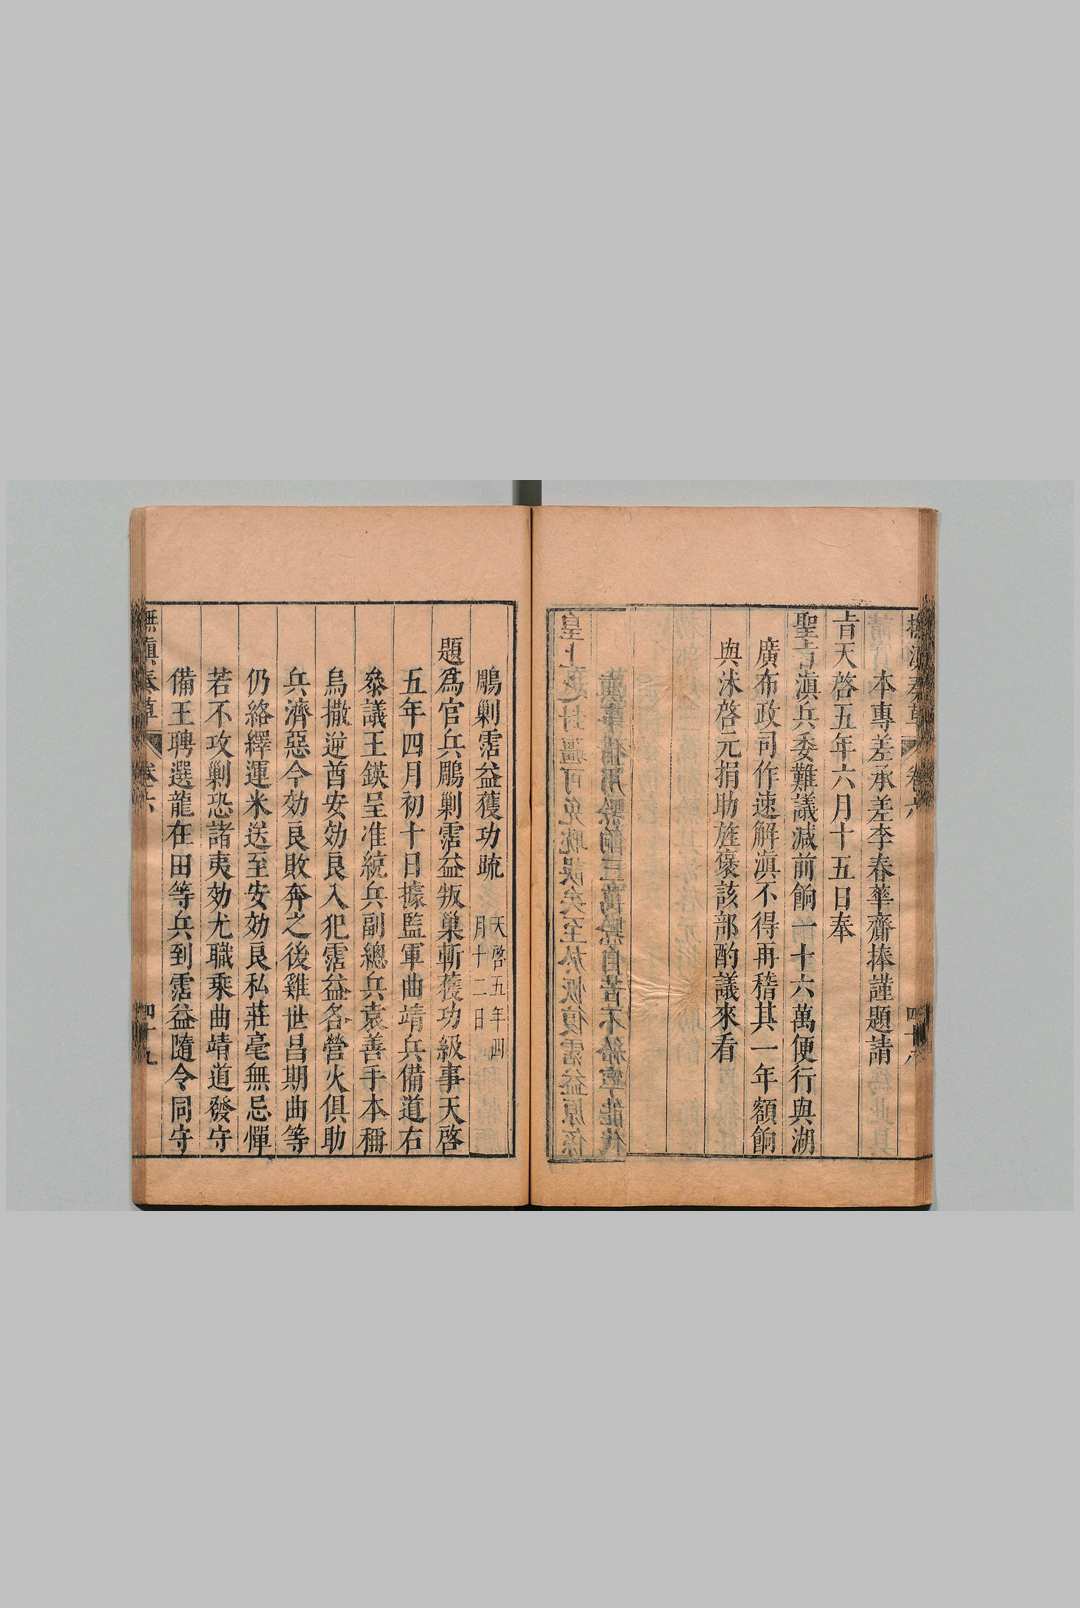 本專差承差李春華齎捧謹題請
旨天啓五年六月十五日奉
聖旨滇兵委難議減前餉一十六萬便行與湖
廣布政司作速解滇不得再稽其一年額餉
與沐啓元捐助旌褒該部酌議來看
鵰剿霑益獲功疏 天啓五年四
月十二日
題爲官兵鵰剿霑益叛巢斬獲功級事天啓
五年四月初十日據監軍曲靖兵備道右
叅議王鍈呈准統兵副總兵袁善手本稱
烏撒逆酋安効良入犯霑益各營火俱助
兵濟惡今効良敗奔之後雞世昌期曲等
仍絡繹運米送至安効良私莊毫無忌憚
若不攻剿恐諸夷効尤職乘曲靖道發守
備王聘選龍在田等兵到霑益隨令同守
撫滇奏草 卷六 四十九